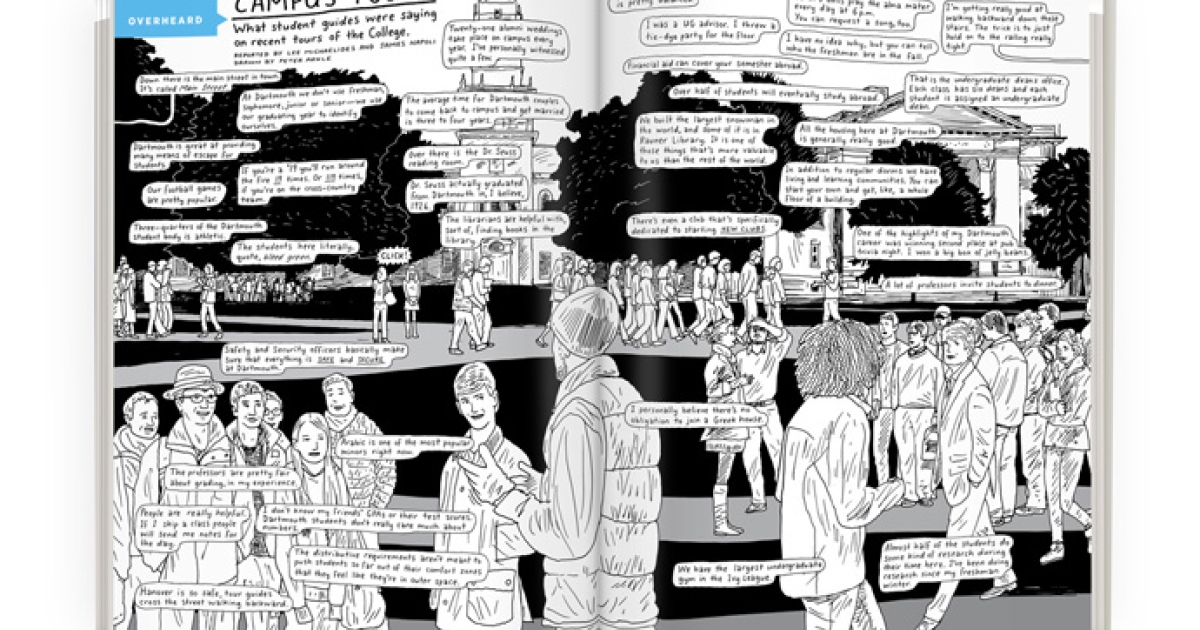 OVERHEARD
CAMPUS
What student guides were saying
on recent tours of the College.
REPORTED BY LEE MICHAELIDES AND JAMES NAPOLI
DRAWN BY PETER ARKLE
Down there is the main street in town.
It's called Main Street.
At Dartmouth we don't use freshman,
sophomore, junior or senior—we use
our graduating year to identify
ourselves.
Dartmouth is great at providing
many means of escape for
students.
Our football games
are pretty popular.
If you're a '19 you'll run around
the fire 19 times. Or 119 times,
if you're on the cross-country
team.
Three-quarters of the Dartmouth
student body is athletic.
The students here literally,
quote, bleed green.
CLICK!
Twenty-one alumni weddings
take place on campus every
year. I've personally witnessed
quite a few.
The average time for Dartmouth couples
to come back to campus and get married
is three to four years.
Over there is the Dr. Seuss
reading room.
Dr. Seuss actually graduated
from Dartmouth in, I believe,
1926.
The librarians are helpful with,
sort of, finding books in the
library.
Safety and Security officers basically make
sure that everything is SAFE and SECURE
at Dartmouth.
Arabic is one of the most popular
minors right now.
The professors are pretty fair
about grading, in my experience.
People are really helpful.
If I skip a class people
will send me notes for
the day.
I don't know my friends' GPAs or their test scores.
Dartmouth students don't really care much about
numbers.
The distributive requirements aren't meant to
push students so far out of their comfort zones
that they feel like they're in outer space.
Hanover is so safe, tour guides
cross the street walking backward.
is pretty balanced.
I was a UG advisor. I threw a
tie-dye party for the floor.
play the alma mater
every day at 6 p.m.
You can request a song, too.
I'm getting really good at
walking backward down these
stairs. The trick is to just
hold on to the railing really
tight.
I have no idea why, but you can tell
who the freshmen are in the fall.
Financial aid can cover your semester abroad.
Over half of students will eventually study abroad.
That is the undergraduate deans office.
Each class has six deans and each
student is assigned an undergraduate
dean.
We built the largest snowman in
the world, and some of it is in
Rauner Library. It is one of
those things that's more valuable
to us than the rest of the world.
All the housing here at Dartmouth
is generally really good.
In addition to regular dorms we have
living and learning communities. You can
start your own and get, like, a whole
floor of a building.
There's even a club that's specifically
dedicated to starting NEW CLUBS.
One of the highlights of my Dartmouth
career was winning second place at pub
trivia night. I won a big box of jelly beans.
A lot of professors invite students to dinner.
I personally believe there's no
obligation to join a Greek house.
We have the largest undergraduate
gym in the Ivy League.
Almost half of the students do
some kind of research during
their time here. I've been doing
research since my freshman
winter.